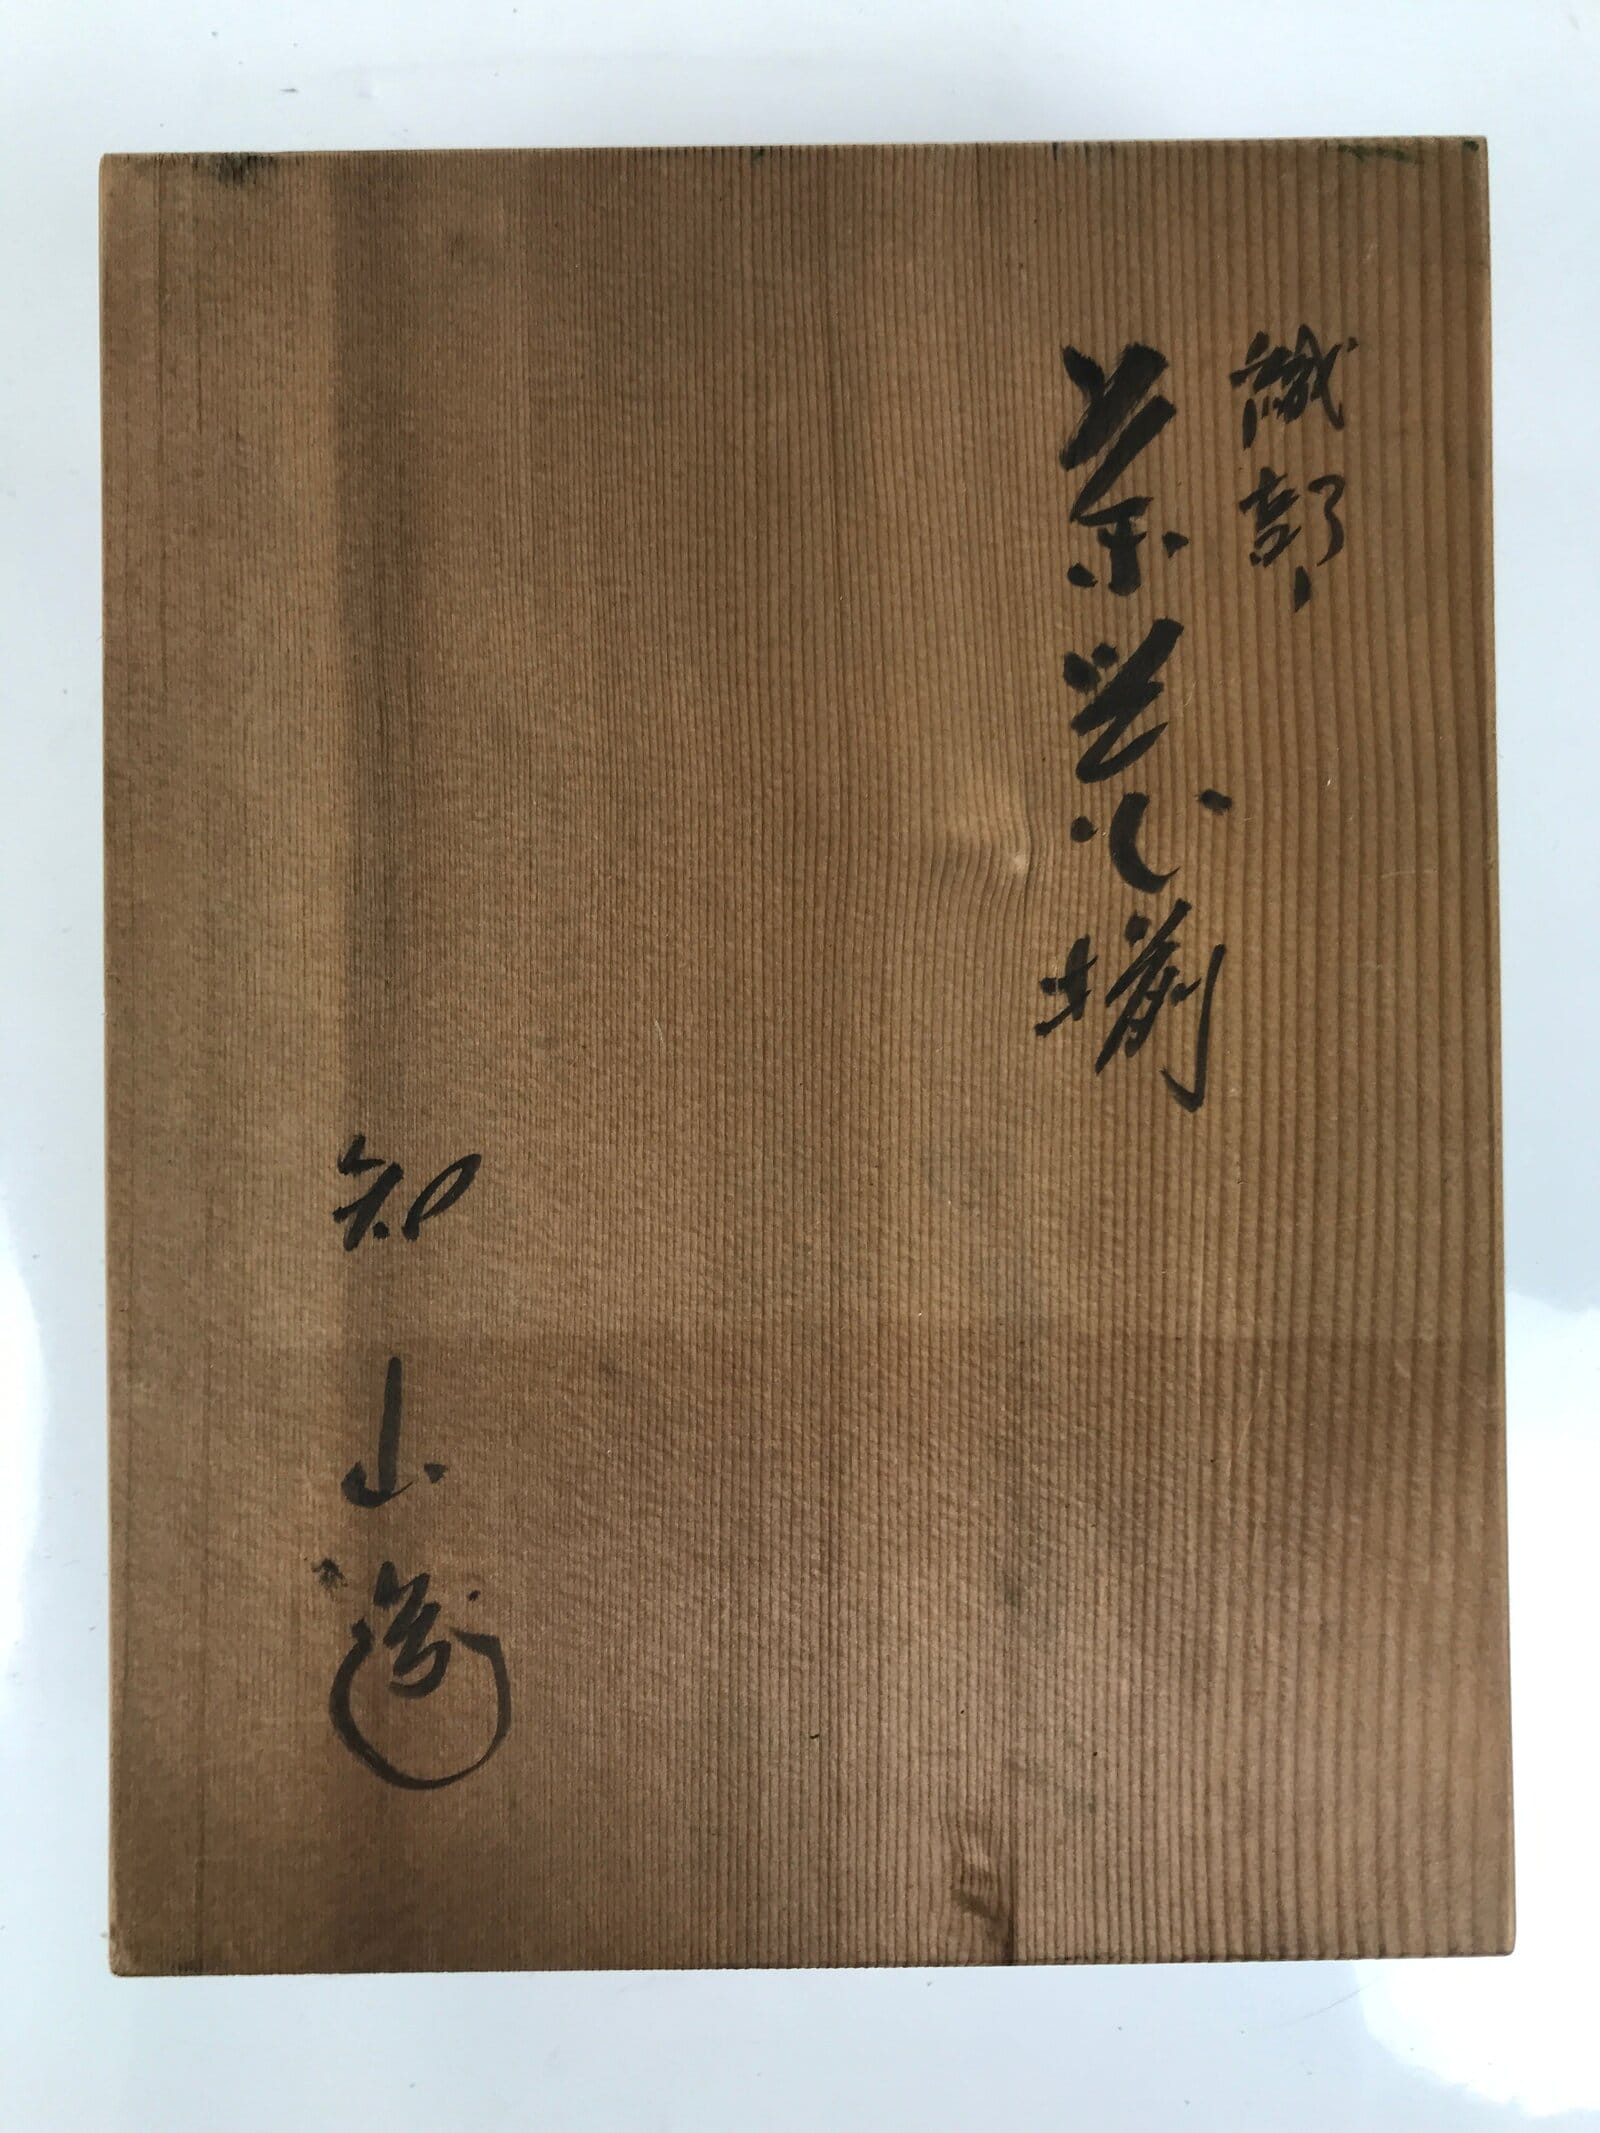 織部
茶器揃
知山造